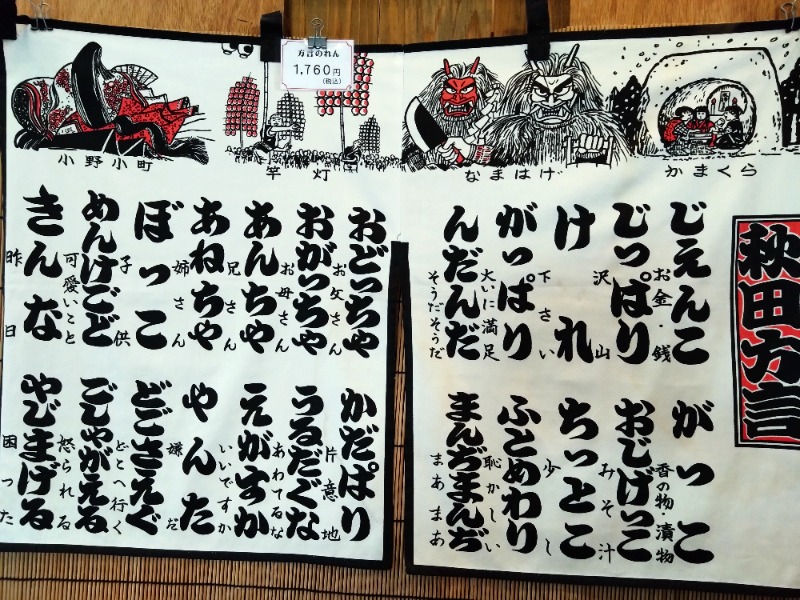 方言のれん
1,760円
(税込)
小野小町
竿灯
なまはげ
かまくら
秋田方言
じぇんこ
お金・銭
じっぱり
沢山
けれ
下さい
がっぱり
大いに満足
んだんだ
そうだそうだ
がっこ
香の物・漬物
おじげっこ
みそ汁
ちっとこ
少し
ふとめわり
恥かしい
まんぢまんぢ
まあまあ
おどっちゃ
お父さん
おがっちゃ
お母さん
あんちゃ
兄さん
あねちゃ
姉さん
ぼっこ
子供
めんけごど
可愛いこと
きんな
昨日
かだぱり
片意地
うるだぐな
あわてるな
えがすか
いいですか
やんた
嫌だ
どごさえぐ
どこへ行く
ごしゃがえる
怒られる
やじまげる
困った